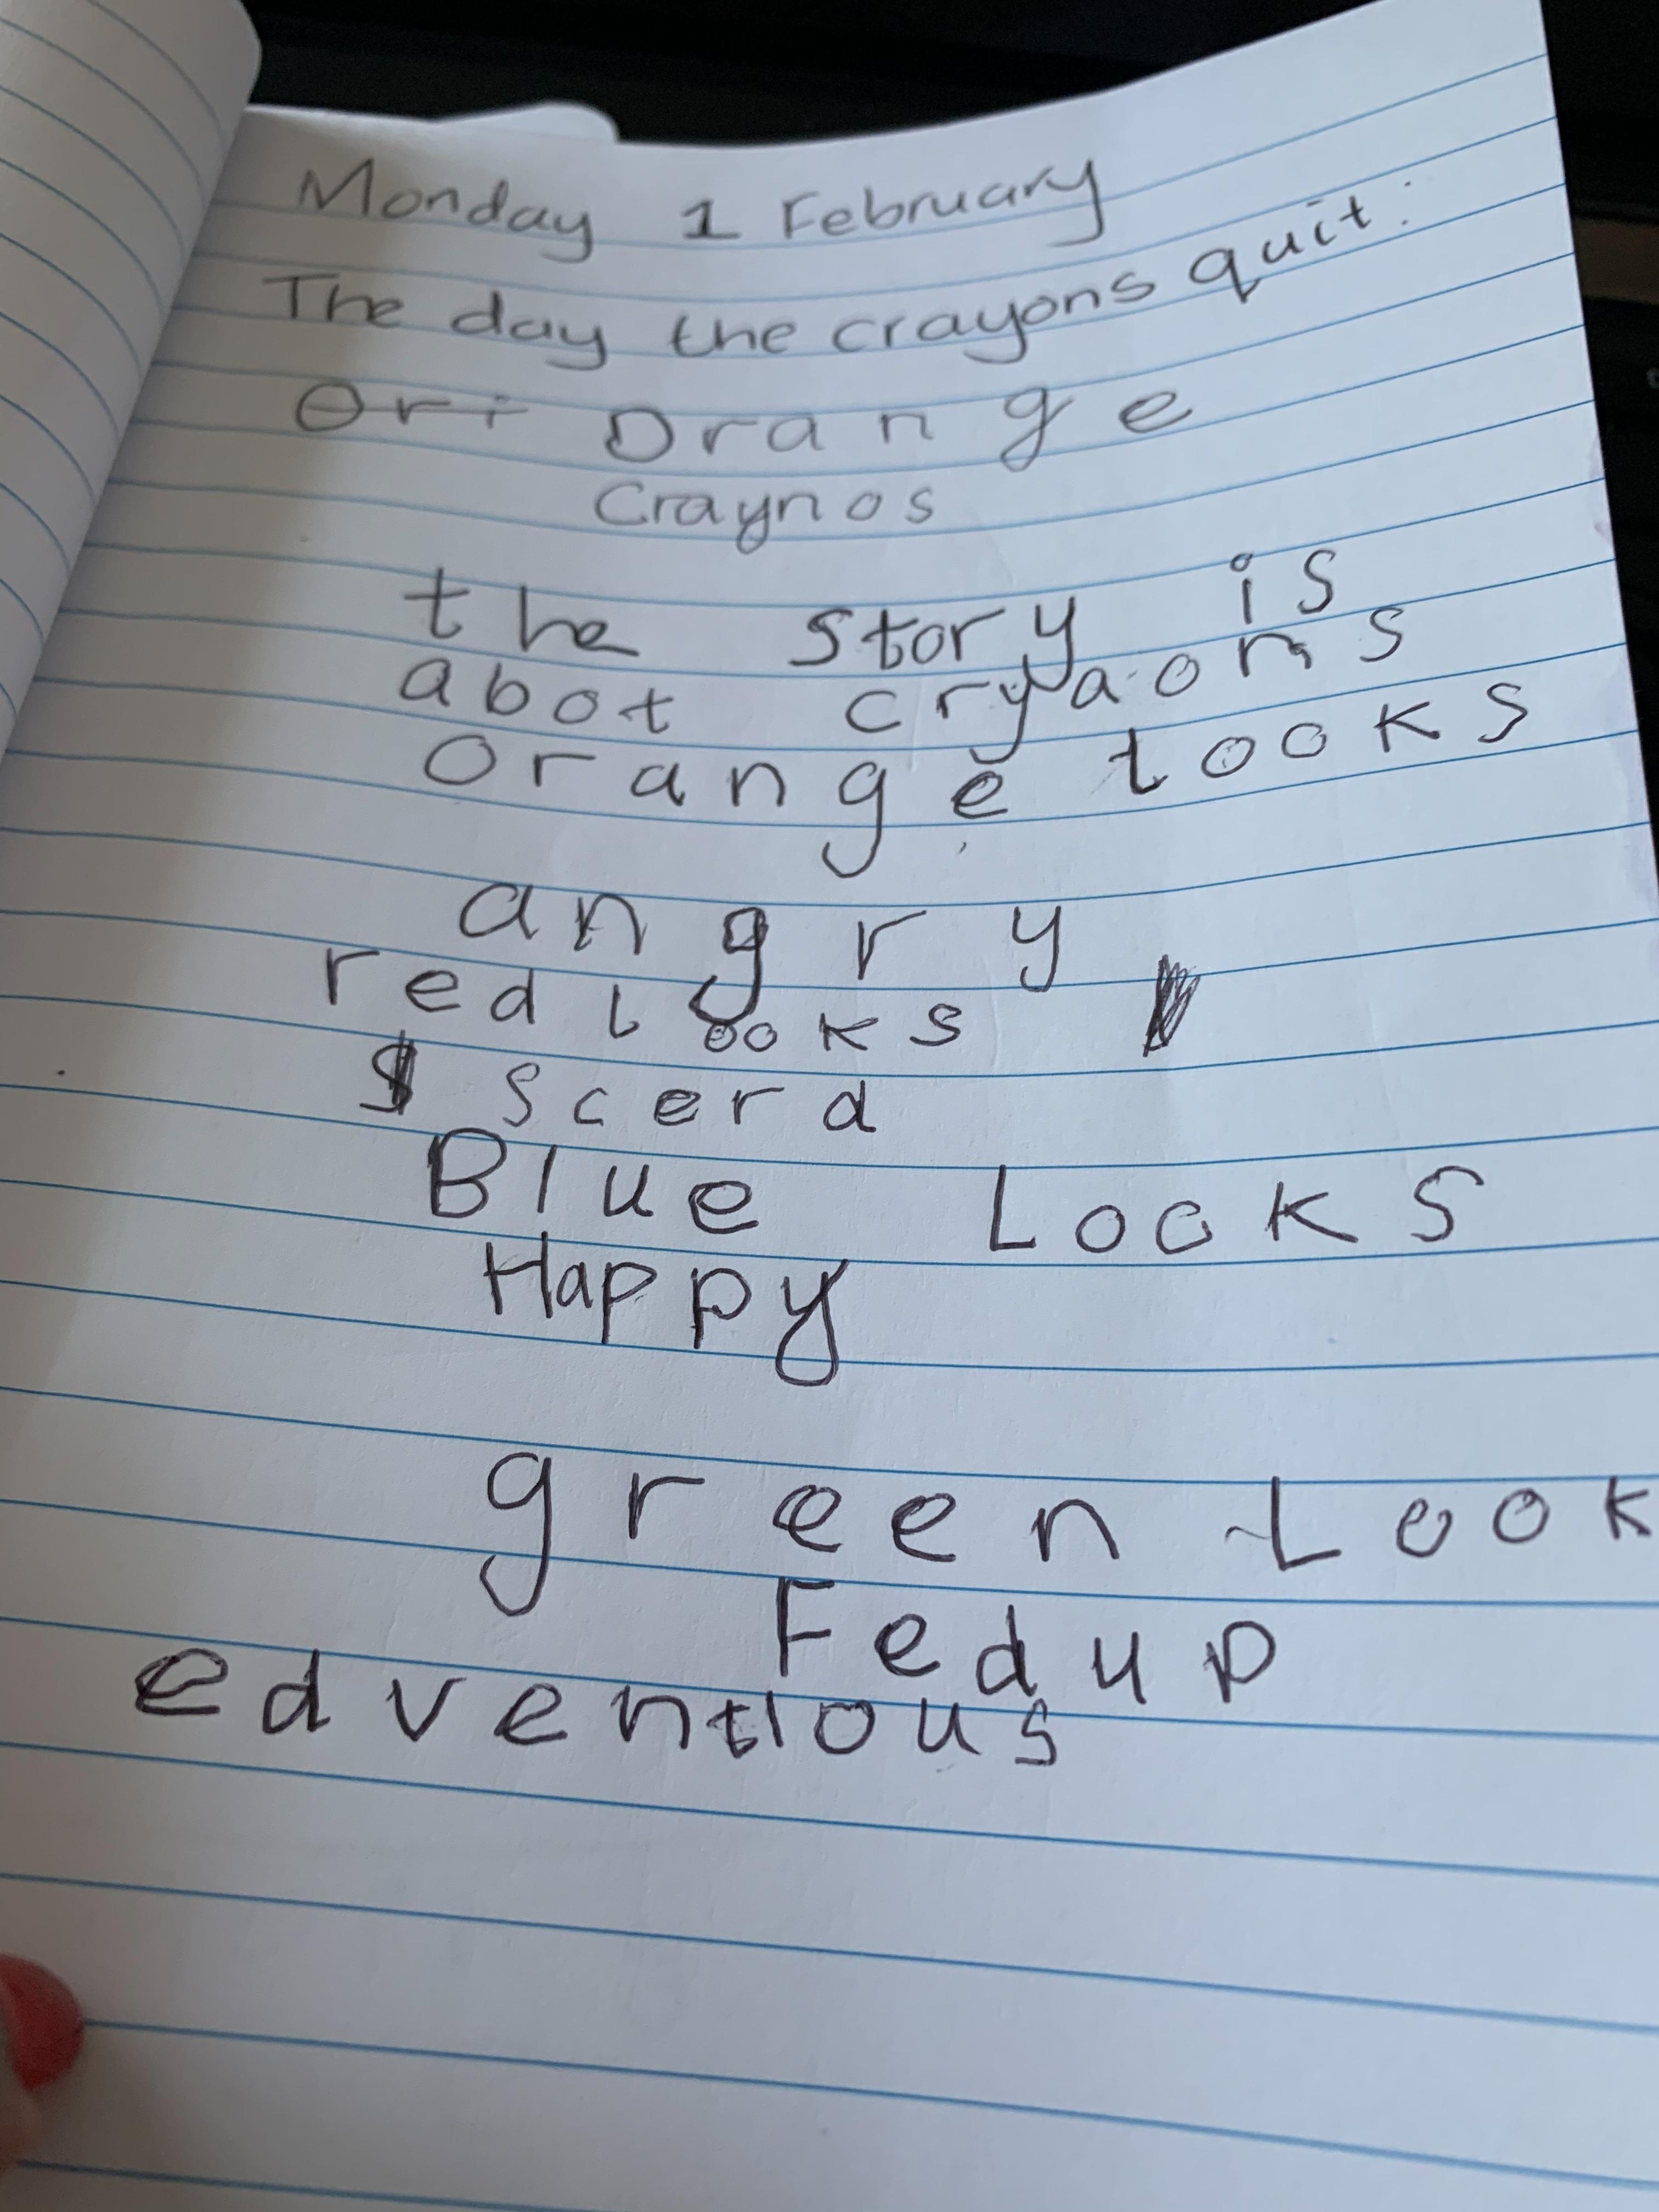 Monday 1 February
The day the crayons quit.
Ori Orange
Craynos
the story is
abot cryaons
orange looks
angry
red looks
s scerd
Blue Looks
Happy
green Look
Fed up
edventious